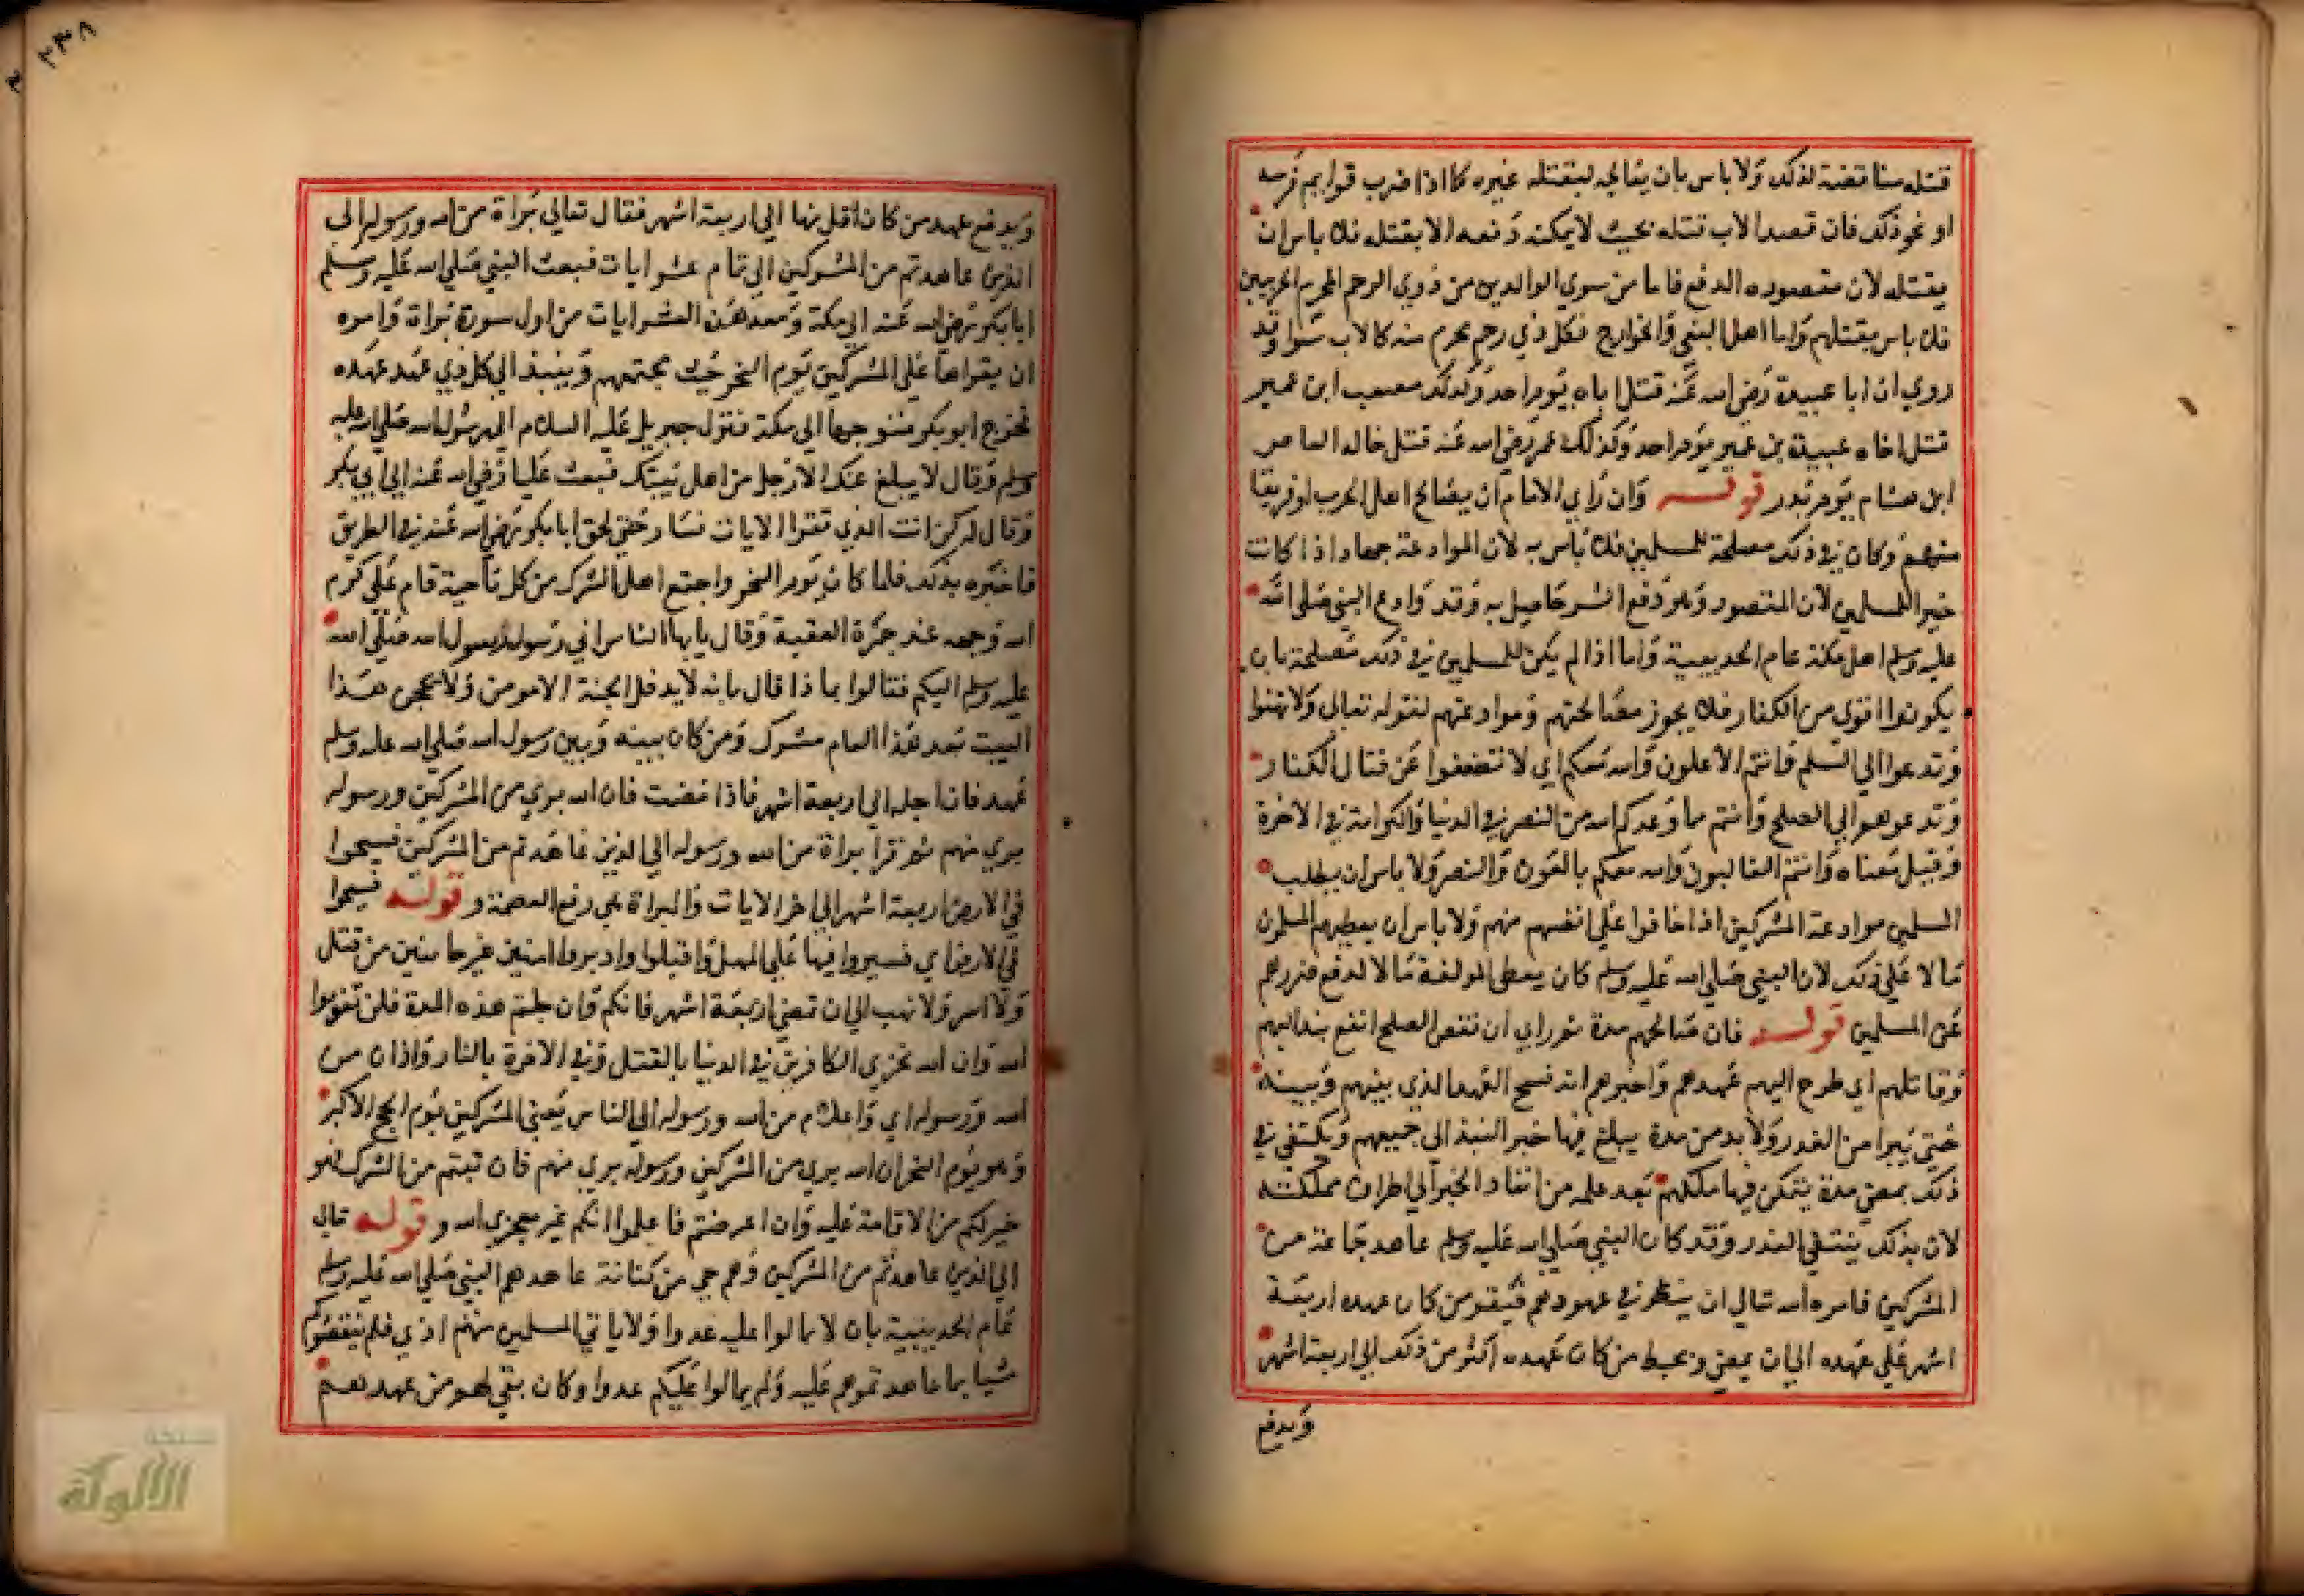 قتله مناقضة لذلك ولا باس بان يعالجه ليقتله غيره كما اذا ضرب قوايم فرسه
او نحو ذلك فان قصد الاب قتله بحيث لا يمكنه دفعه الا بقتله فلا باس ان
يقتله لان مقصوده الدفع فاما من سوي الوالدين من ذوي الرحم المحرم الحربيين
فلا باس بقتلهم واما اهل البغي والخوارج فكل ذي رحم محرم منه كالاب سوا وقد
روي ان ابا عبيدة رضي الله عنه قتل اباه يوم احد وكذلك مصعب ابن عمير
قتل اخاه عبيدة بن عمير يوم احد وكذلك عمر رضي الله عنه قتل خاله العاص
ابن هشام يوم بدر قوله وان راي الامام ان يصالح اهل الحرب او فريقا
منهم وكان في ذلك مصلحة للمسلمين فلا باس به لان الموادعة جهاد اذا كانت
خيرا للمسلمين لان المقصود وهو دفع الشر حاصل به وقد وادع النبي صلى الله
عليه وسلم اهل مكة عام الحديبية واما اذا لم يكن للمسلمين في ذلك مصلحة بان
يكونوا اقوي من الكفار فلا يجوز مصالحتهم وموادعتهم لقوله تعالى ولا تهنوا
وتدعوا الي السلم وانتم الاعلون والله معكم اي لا تضعفوا عن قتال الكفار
وتدعوهم الي الصلح وانتم مما وعدكم الله من النصر في الدنيا والكرامة في الاخرة
وقيل معناه وانتم الغالبون والله معكم بالعون والنصر ولا باس ان يطلب
المسلمين موادعة المشركين اذا خافوا علي انفسهم منهم ولا باس ان يعطيهم المسلمون
مالا علي ذلك لان النبي صلي الله عليه وسلم كان يعطي المولفة مالا لدفع ضررهم
عن المسلمين قوله فان صالحهم مدة ثم راي ان نقض الصلح انفع نبذ اليهم
وقاتلهم اي طرح اليهم عهدهم واخبرهم انه فسخ العهد الذي بينهم وبينه
حتي يبرا من الغدر ولا بد من مدة يبلغ فيها خبر النبذ الي جميعهم ويكتفي في
ذلك بمضي مدة يتمكن فيها ملكهم بعد علمه من انفاذ الخبر الي اطراف مملكته
لان بذلك ينتفي الغدر وقد كان النبي صلي الله عليه وسلم عاهد جماعة من
المشركين فامره الله تعالي ان ينظر في عهودهم فيقر من كان عهده اربعة
اشهر علي عهده الي ان يمضي ويحط من كان عهده اكثر من ذلك الي اربعة اشهر
ويدفع
٢٣٨
ويدفع عهد من كان اقل منها الي اربعة اشهر فقال تعالي براة من الله ورسوله الى
الذين عاهدتم من المشركين الي تمام عشر ايات فبعث النبي صلي الله عليه وسلم
ابا بكر رضي الله عنه الي مكة ومعه هذه العشر ايات من اول سورة براة وامره
ان يقراها علي المشركين يوم النحر حيث مجتمعهم وينبذ الي كل ذي عهد عهده
فخرج ابو بكر متوجها الي مكة فنزل جبريل عليه السلام الي رسول الله صلي الله عليه
وسلم وقال لا يبلغ عنك الا رجل من اهل بيتك فبعث عليا رضي الله عنه الي ابي بكر
وقال له كن انت الذي تقرا الايات فسار حتي لحق ابا بكر رضي الله عنه في الطريق
فاخبره بذلك فلما كان يوم النحر واجتمع اهل الشرك من كل ناحية قام علي كرم
الله وجهه عند جمرة العقبة وقال يايها الناس اني رسول رسول الله صلي الله
عليه وسلم اليكم فقالوا بماذا قال بانه لا يدخل الجنة الا مومن ولا يحجن هذا
البيت بعد هذا العام مشرك ومن كان بينه وبين رسول الله صلي الله عليه وسلم
عهد فان اجله الي اربعة اشهر فاذا مضت فان الله بري من المشركين ورسوله
بري منهم ثم قرا براة من الله ورسوله الي الذين عاهدتم من المشركين فسيحوا
في الارض اربعة اشهر الي اخر الايات والبراة هي رفع العصمة و قوله فسيحوا
في الارض اي فسيروا فيها علي المهل واقبلوا وادبروا امنين غير خائفين من قتل
ولا اسر ولا نهب الي ان تمضي اربعة اشهر فانكم وان جلتم هذه المدة فلن تفوتوا
الله وان الله مخزي الكافرين في الدنيا بالقتل وفي الاخرة بالنار واذان من
الله ورسوله اي واعلام من الله ورسوله الي الناس يعني المشركين يوم الحج الاكبر
وهو يوم النحر ان الله بري من المشركين ورسوله بري منهم فان تبتم من الشرك فهو
خير لكم من الاقامة عليه وان اعرضتم فاعلموا انكم غير معجزي الله و قوله تعالى
الي الذين عاهدتم من المشركين وهم حي من كنانة عاهدهم النبي صلي الله عليه وسلم
عام الحديبية بان لا يمالوا عليه عدوا ولا ياتي المسلمين منهم اذي فلم ينقضوكم
شيا بما عاهدتموهم عليه ولم يمالوا عليكم عدوا وكان بقي لهم من عهدهم
الألوكة